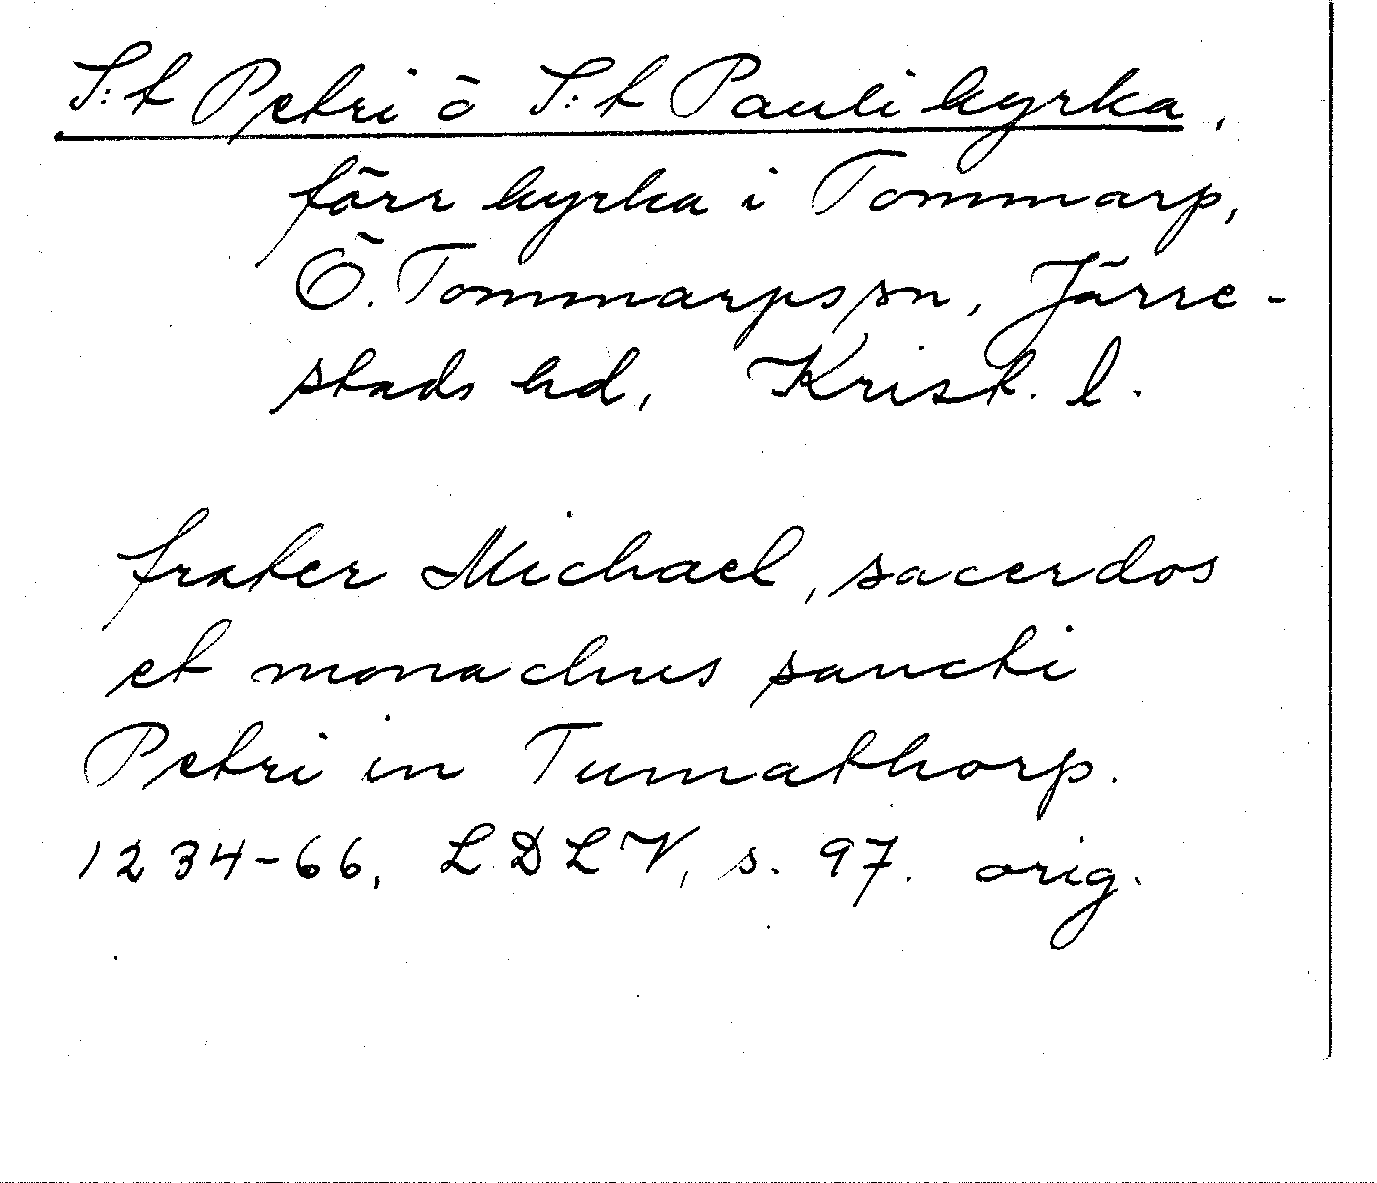 S:t Petri o S:t Pauli kyrka,
förr kyrka i Tommarp,
Ö. Tommarps sn, Järre-
stads hd, Krist. l.
frater Michael, sacerdos
et monachus sancti
Petri in Tumathorp.
1234-66, LDLV, s. 97. orig.